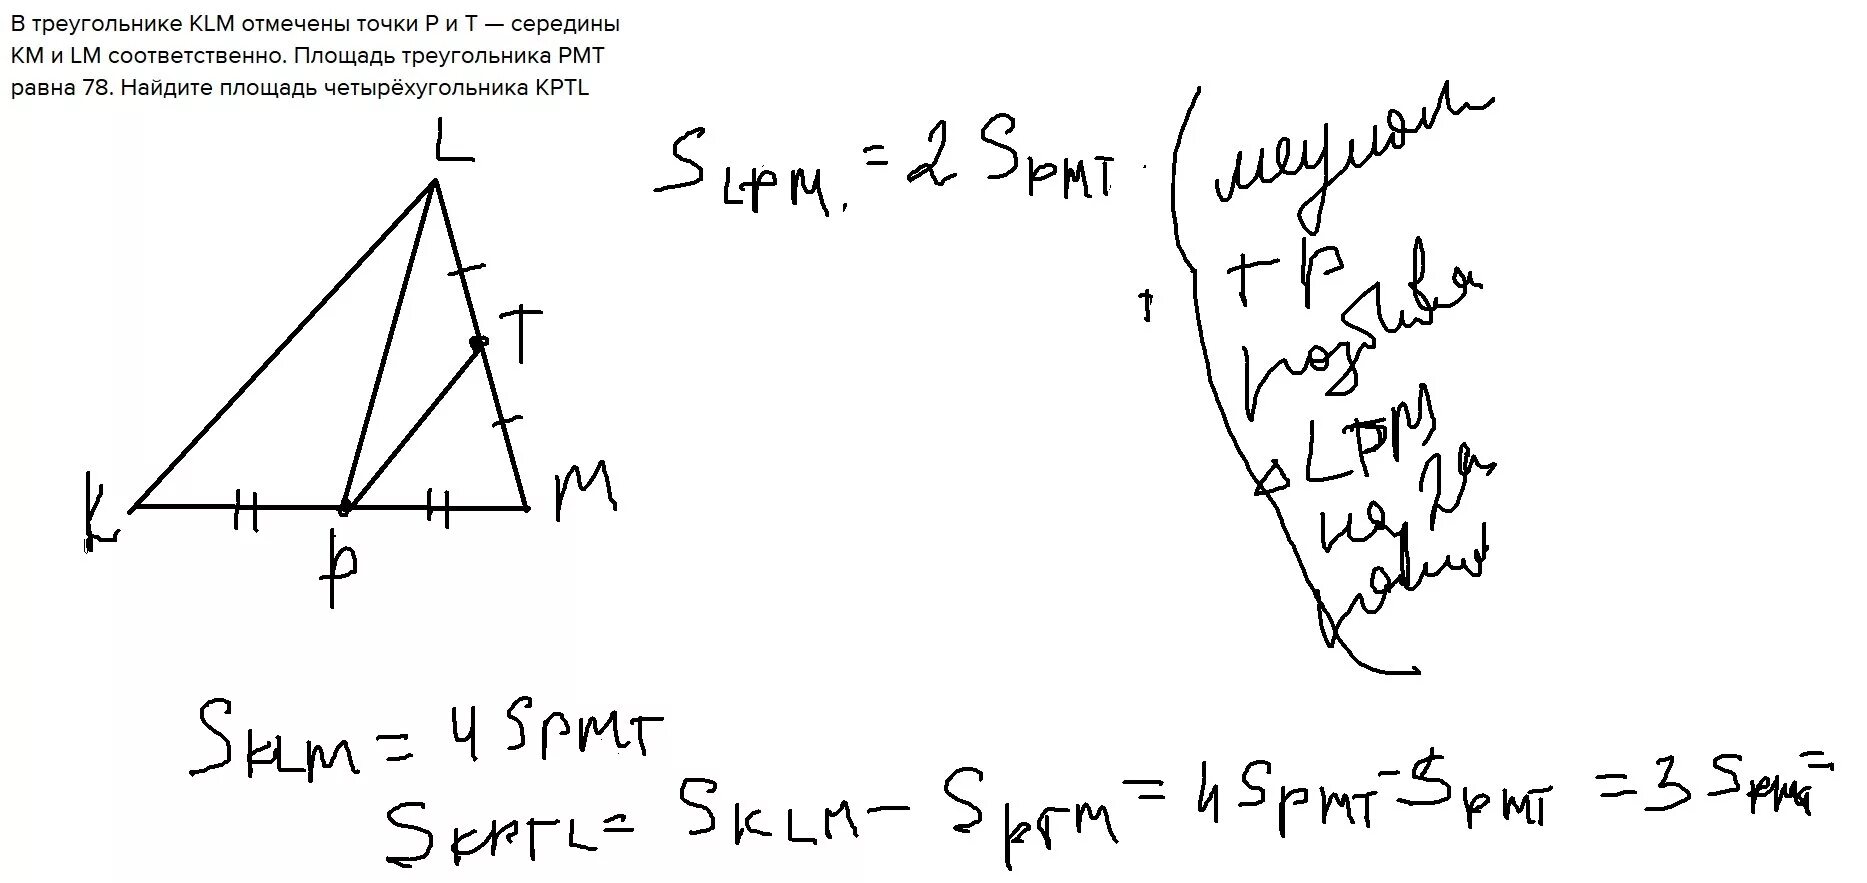 В треугольнике KLM отмечены точки P и T — середины
KM и LM соответственно. Площадь треугольника PMT
равна 78. Найдите площадь четырёхугольника KPTL
L
T
K
P
M
S LPM = 2 S PMT
медиана
TP
разбива
△ LPM
на 2а
равных
S KLM = 4 S PMT
S KPTL = S KLM - S PTM = 4 S PMT - S PMT = 3 S PMT =